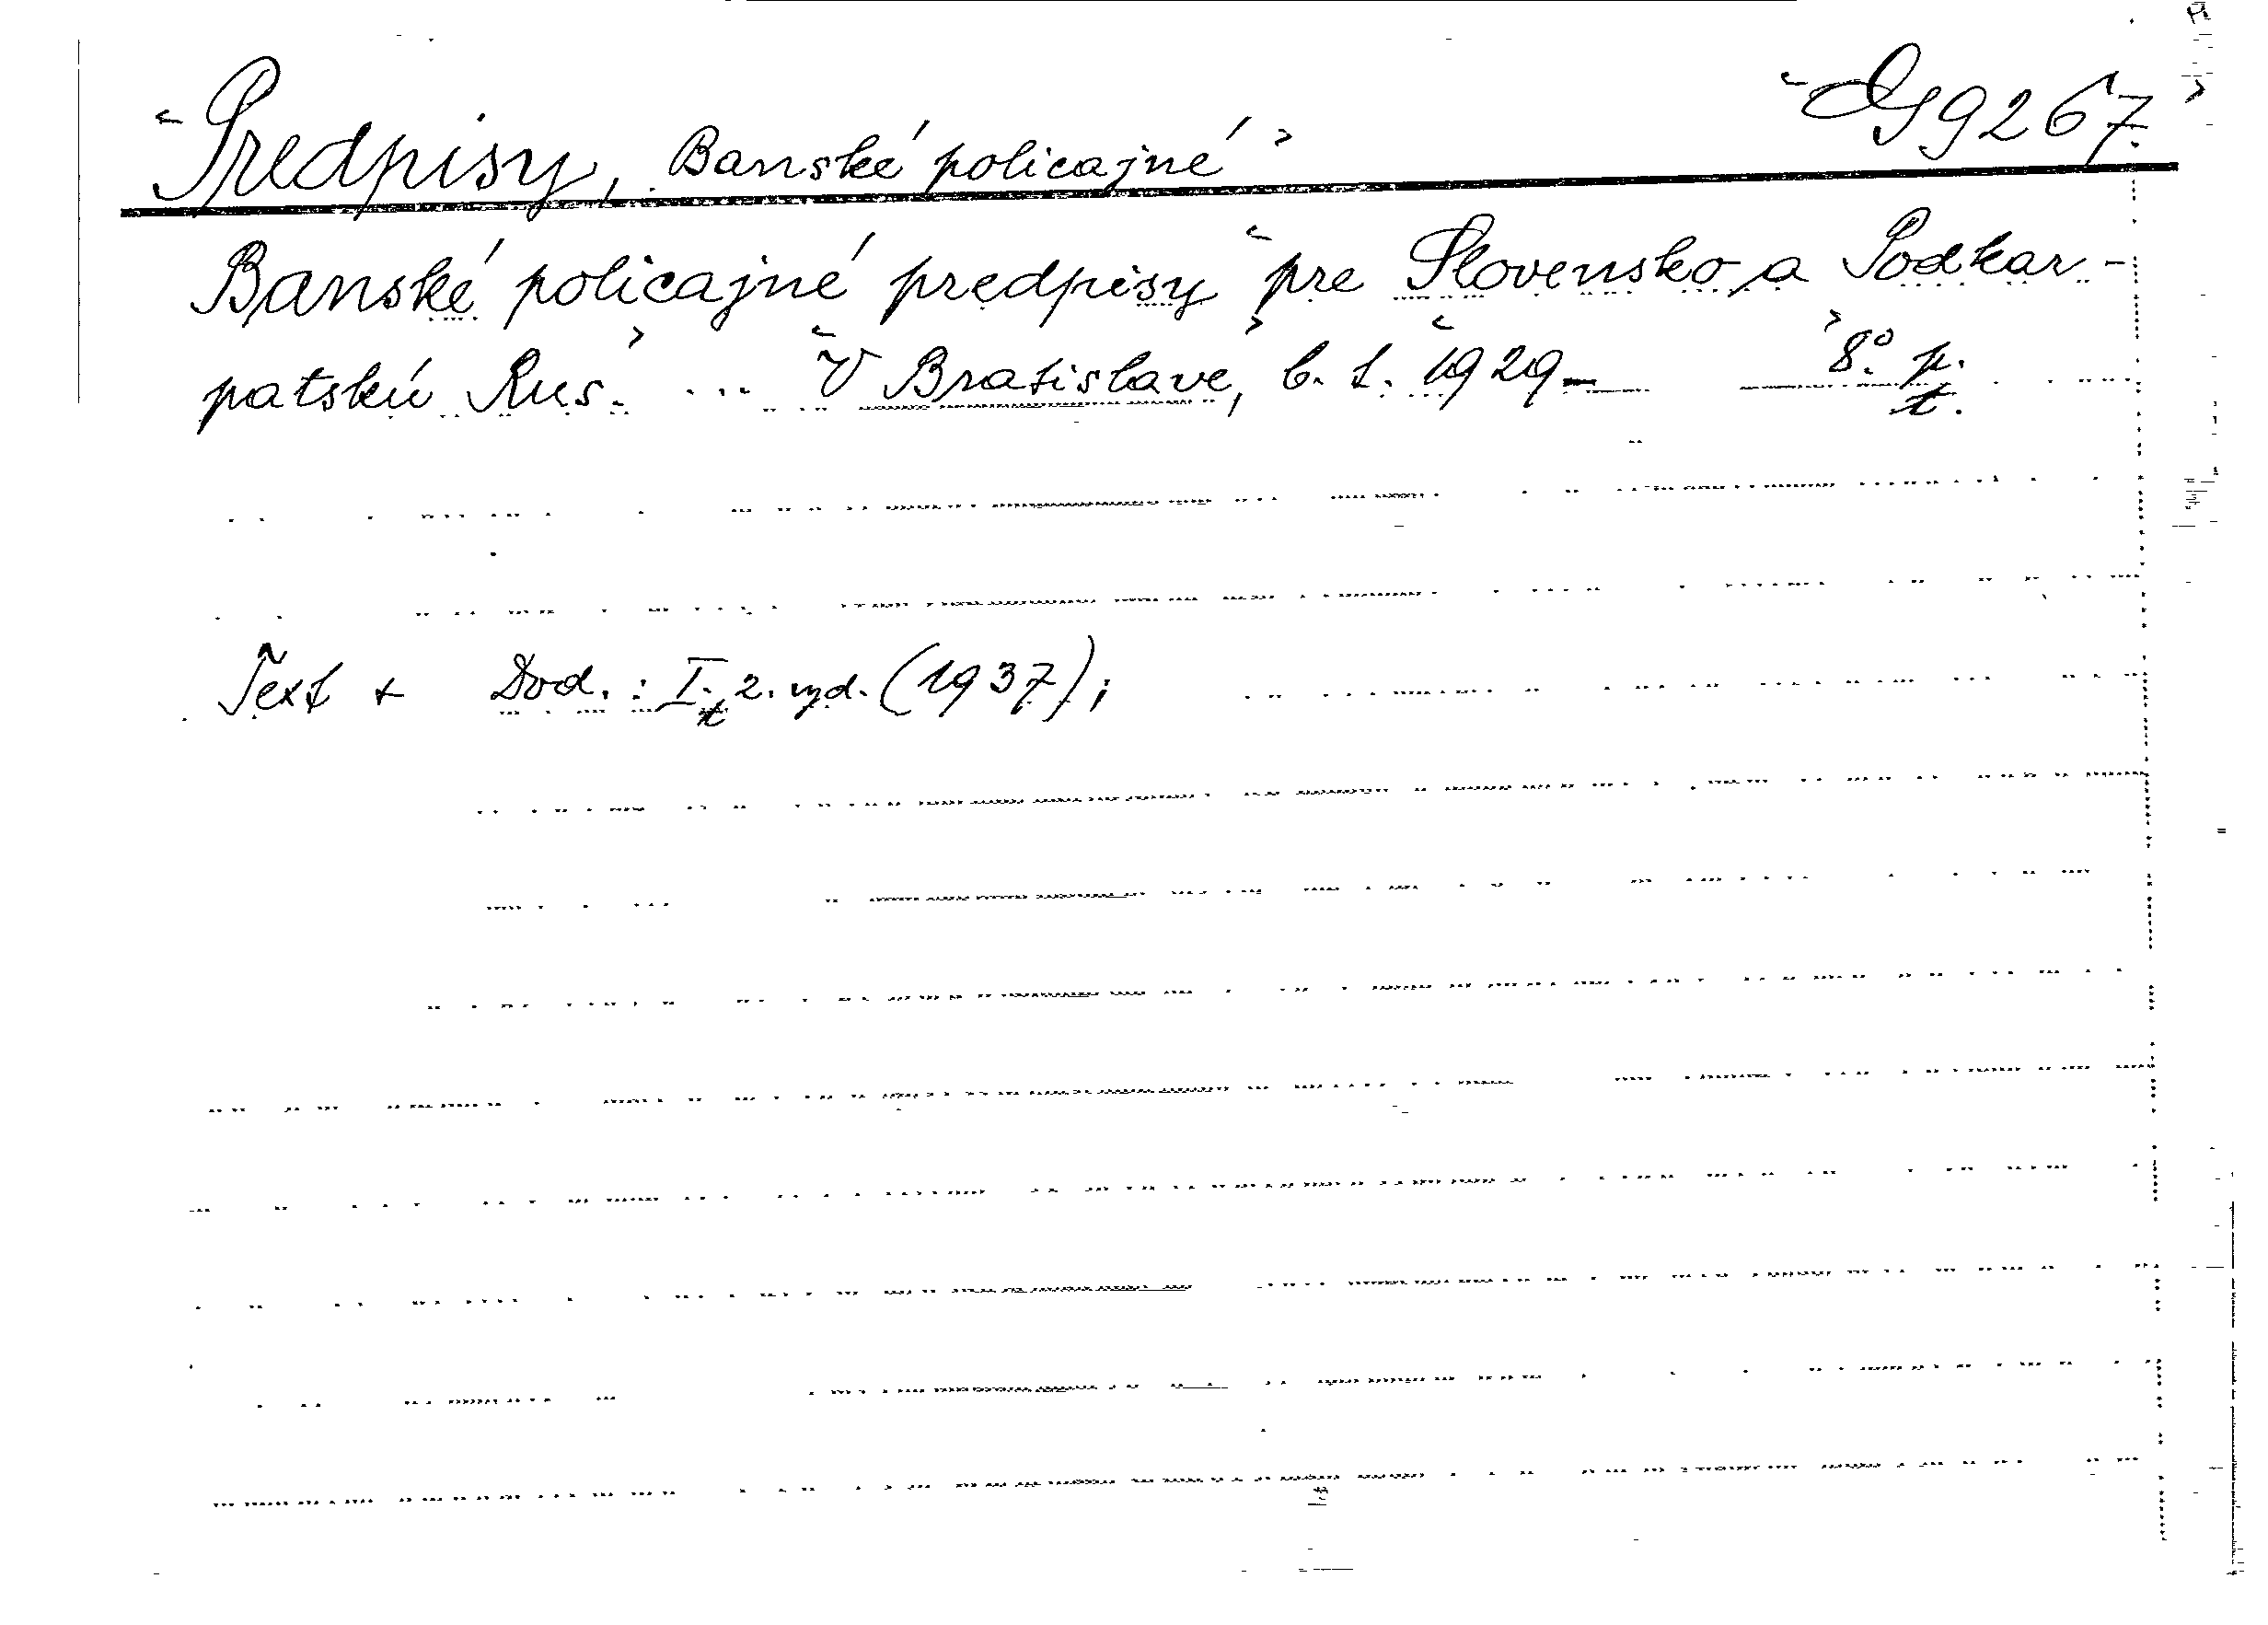 Predpisy, Banské policajné G 9267.
Banské policajné predpisy pre Slovensko a Podkar-
patskú Rus. ... V Bratislave, b. t. 1929- 8° p.
t.
Text + Dod. : I. 2. vyd. (1937);
t